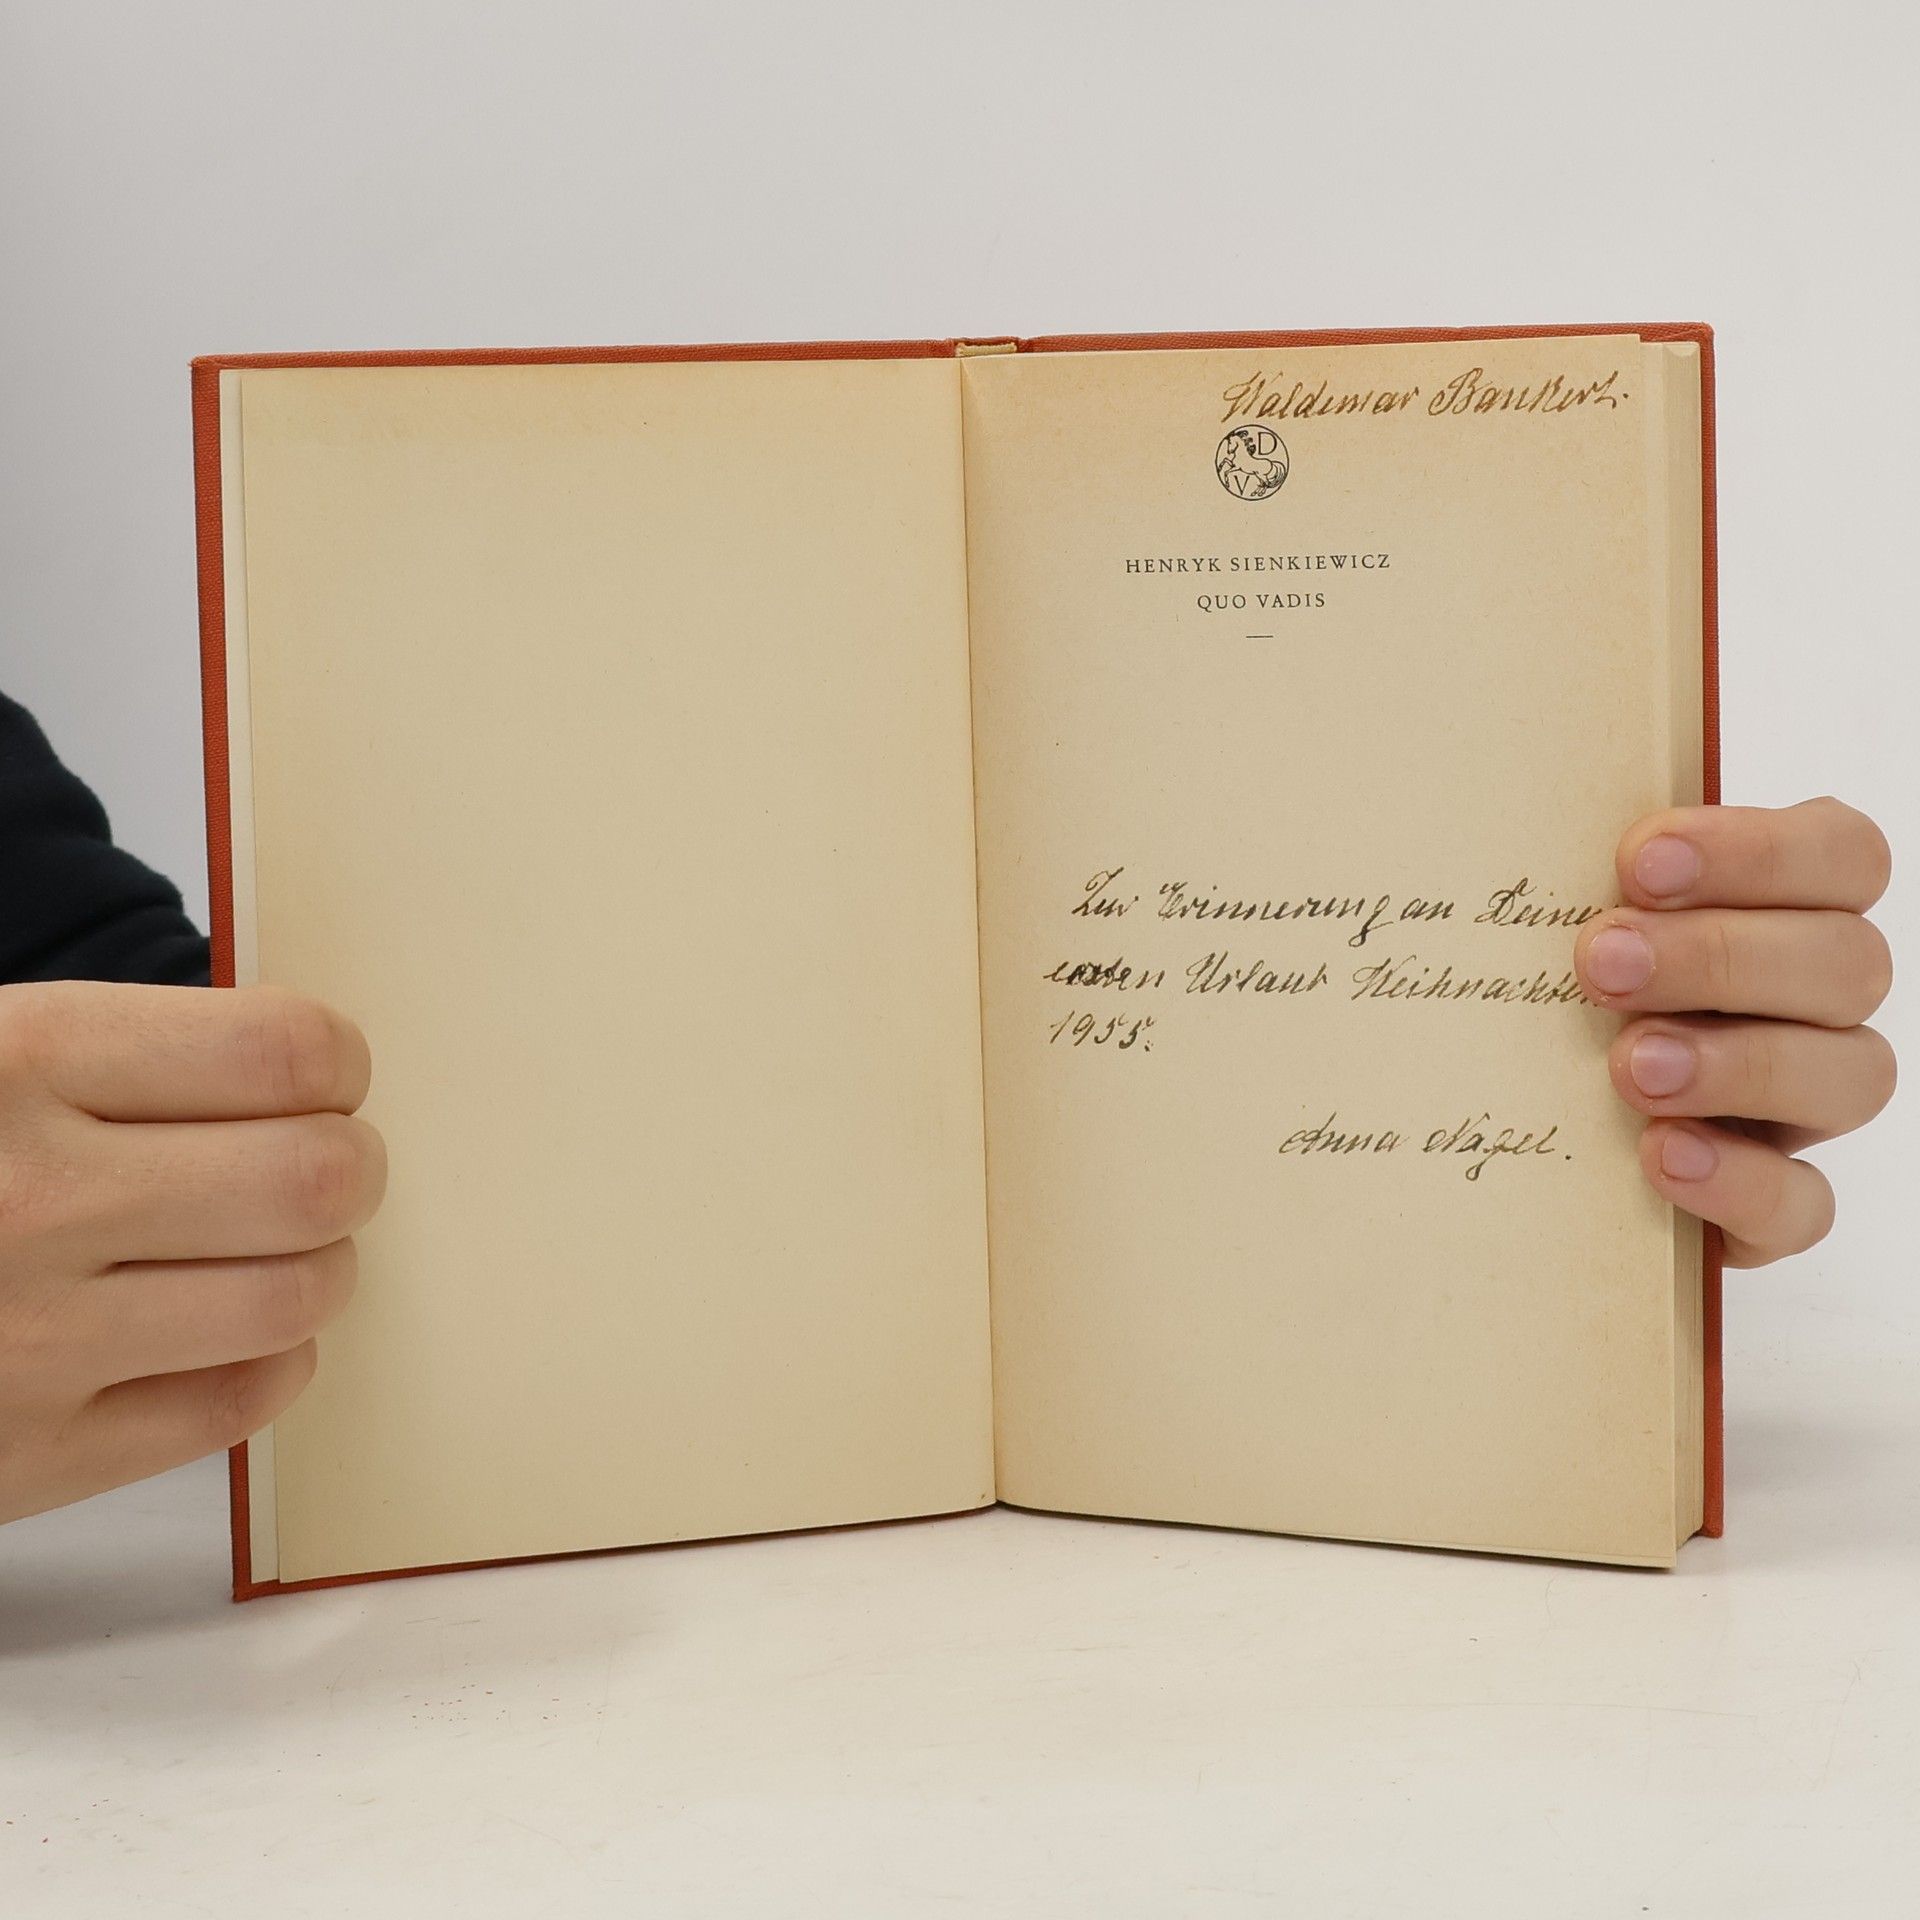 Waldemar Bankert.
D
V
HENRYK SIENKIEWICZ
QUO VADIS
Zur Erinnerung an Deinen
ersten Urlaub Weihnachten
1955.
Anna Nagel.